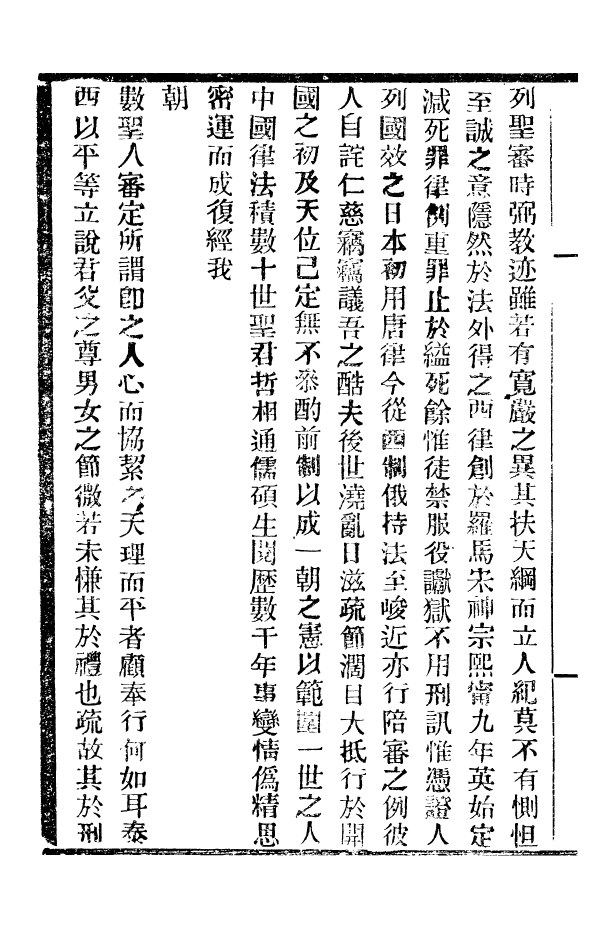 列聖審時弼教迹雖若有寬嚴之異其扶天綱而立人紀莫不有惻怛
至誠之意隱然於法外得之西律創於羅馬宋神宗熙甯九年英始定
減死罪律例重罪止於縊死餘惟徒禁服役讞獄不用刑訊惟憑證人
列國效之日本初用唐律今從西制俄持法至峻近亦行陪審之例彼
人自詫仁慈竊竊議吾之酷夫後世澆亂日滋疏節濶目大抵行於開
國之初及天位已定無不叅酌前制以成一朝之憲以範圍一世之人
中國律法積數十世聖君哲相通儒碩生閱歷數千年事變情僞精思
密運而成復經我
朝
數聖人審定所謂卽之人心而協絜之天理而平者顧奉行何如耳泰
西以平等立說君父之尊男女之節微若未慊其於禮也疏故其於刑